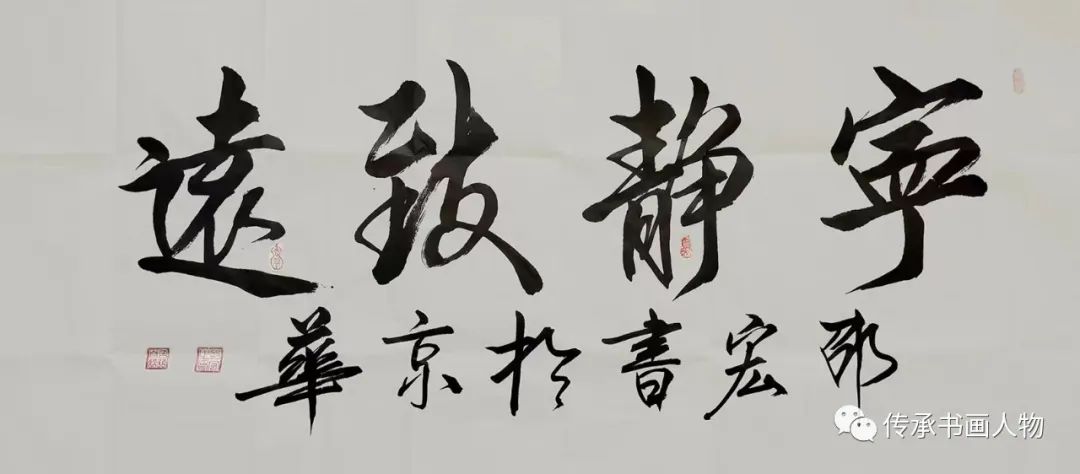 寧静致遠
宏書於京華
传承书画人物